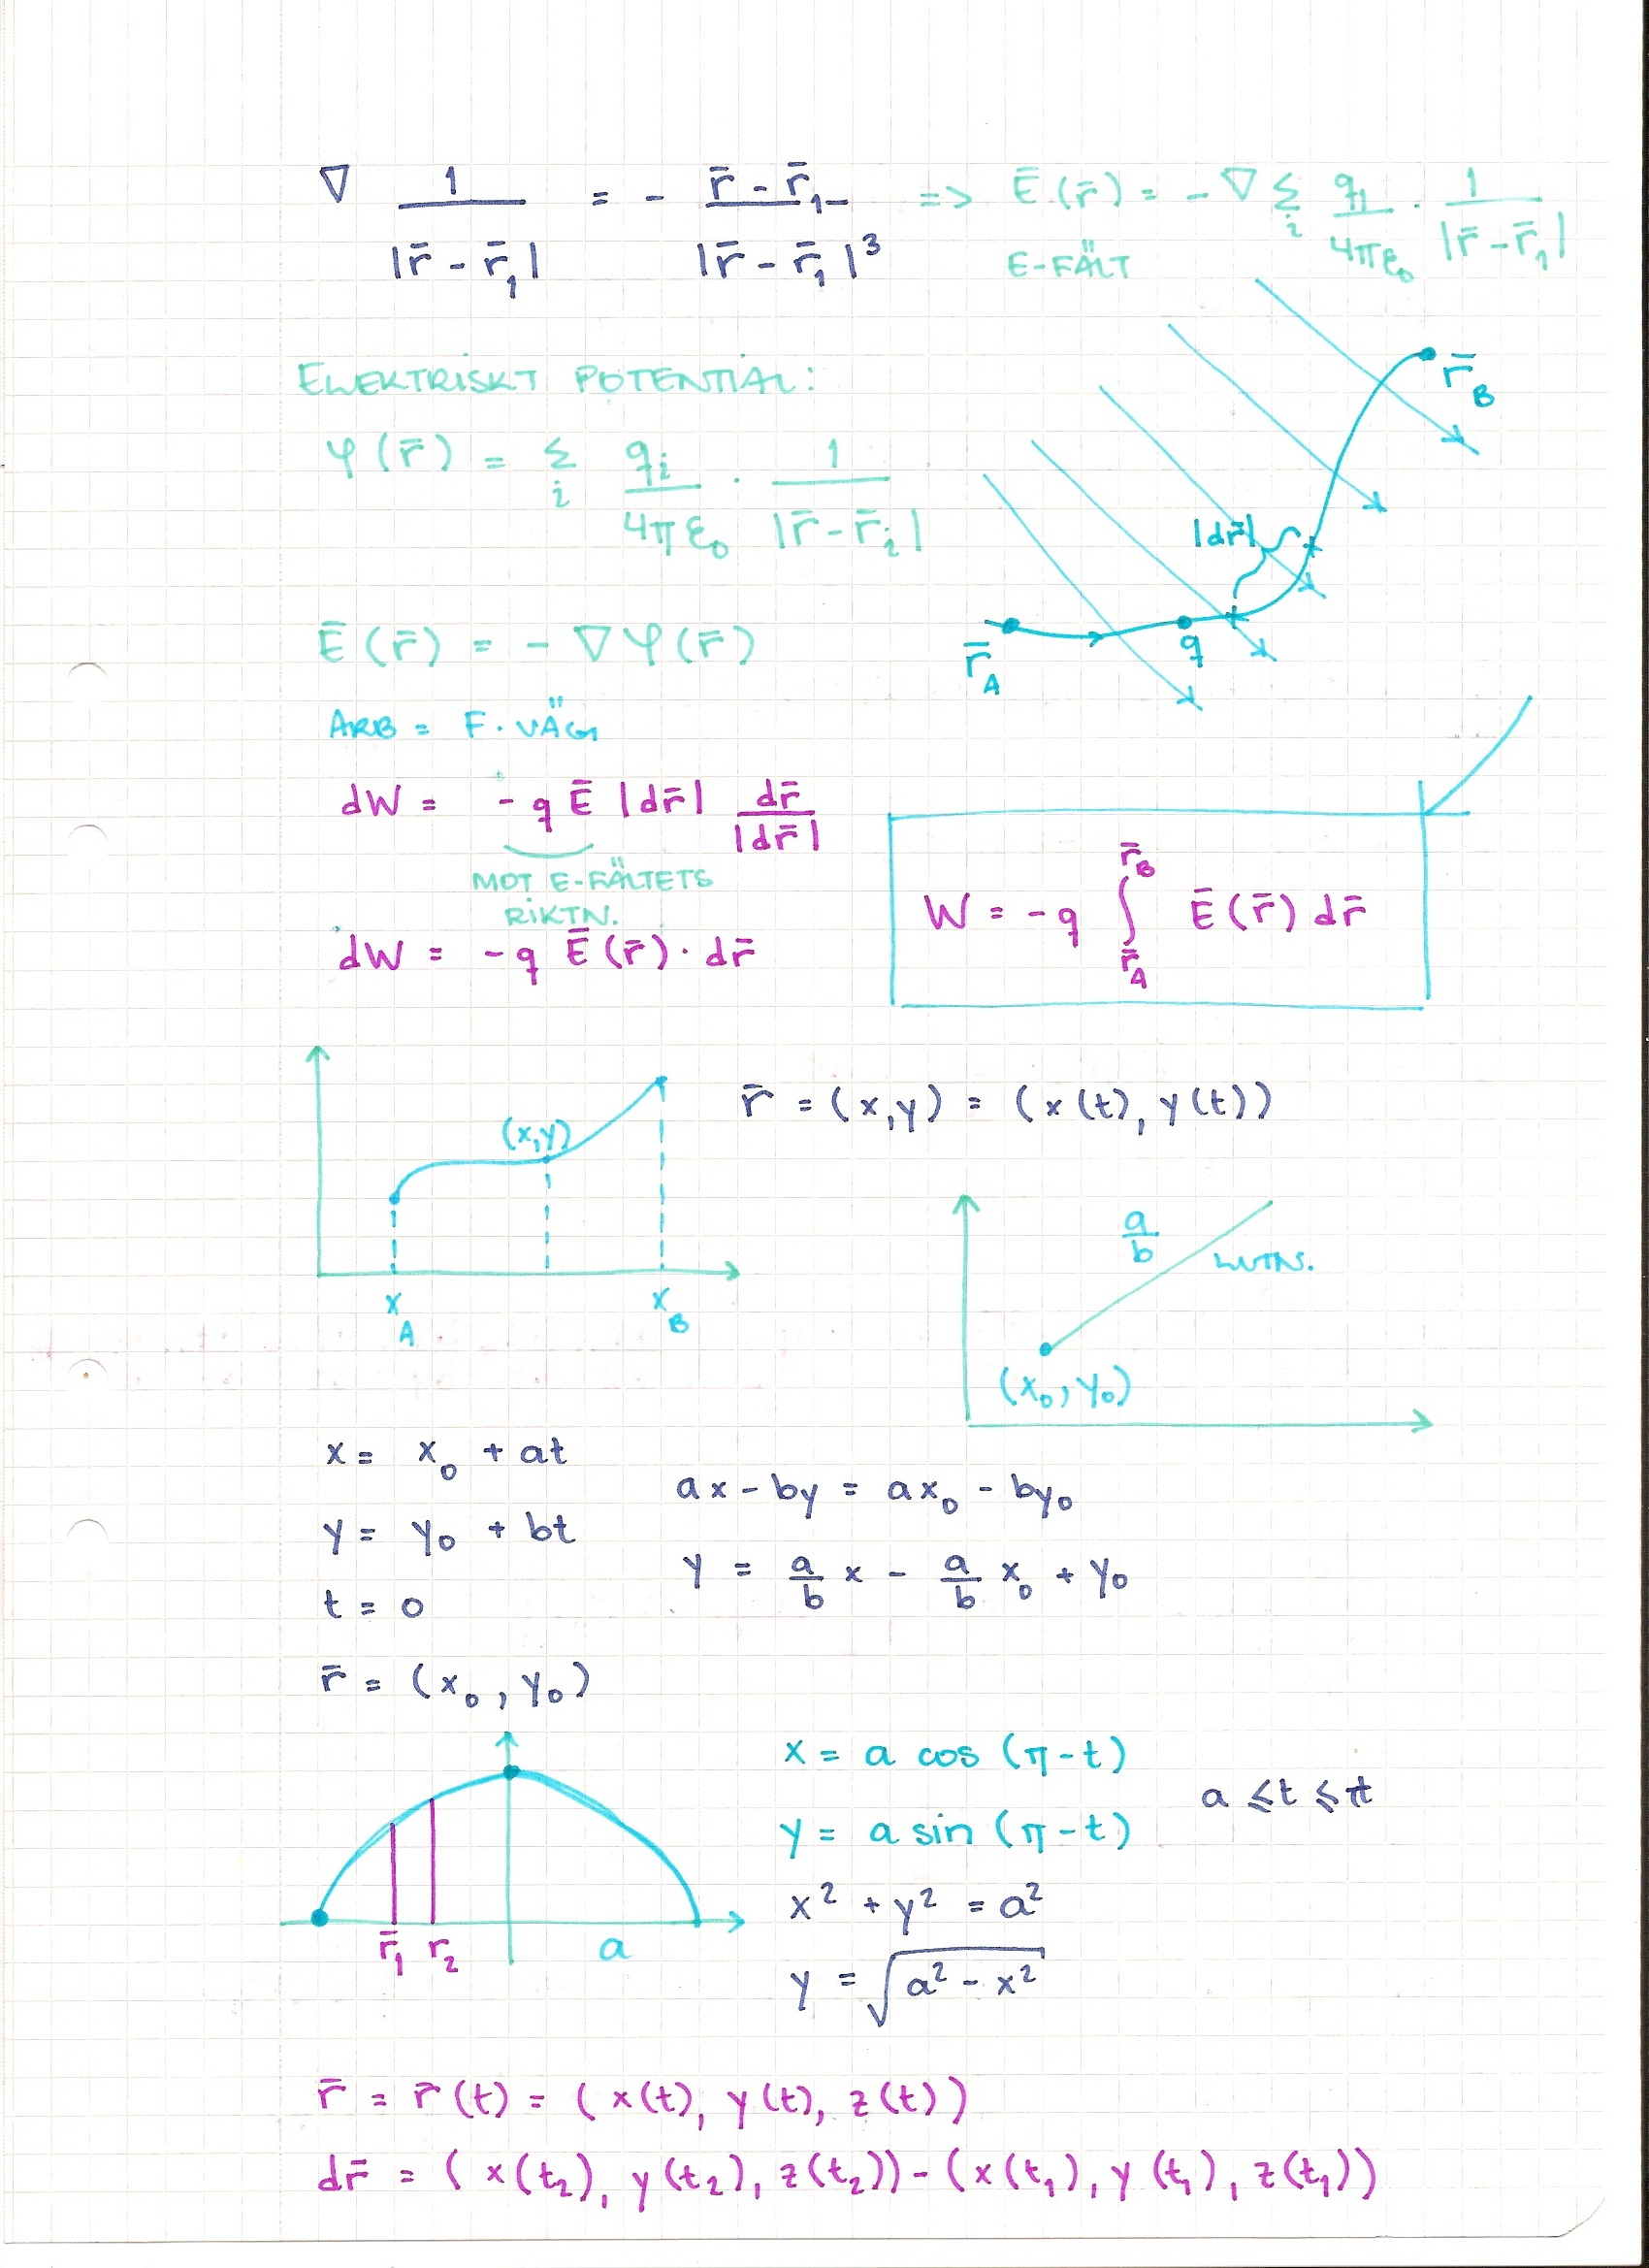 ∇ 1/|r̄ - r̄₁| = - (r̄ - r̄₁)/|r̄ - r̄₁|³ => Ē(r̄) = -∇ Σᵢ q₁/4πε₀ · 1/|r̄ - r̄₁|
E-FÄLT
ELEKTRISKT POTENTIAL:
φ(r̄) = Σᵢ qᵢ/4πε₀ · 1/|r̄ - r̄ᵢ|
r̄_B
|dr̄|
r̄_A
q
Ē(r̄) = -∇φ(r̄)
ARB = F · VÄG
dW = -q Ē |dr̄| dr̄/|dr̄|
MOT E-FÄLTETS
RIKTN.
dW = -q Ē(r̄) · dr̄
W = -q ∫_{r̄_A}^{r̄_B} Ē(r̄) dr̄
r̄ = (x,y) = (x(t), y(t))
(x,y)
x_A
x_B
a/b
LUTN.
(x₀, y₀)
x = x₀ + at
y = y₀ + bt
t = 0
ax - by = ax₀ - by₀
y = a/b x - a/b x₀ + y₀
r̄ = (x₀, y₀)
r̄₁ r₂ a
x = a cos (π-t)
y = a sin (π-t)
a ≤ t ≤ π
x² + y² = a²
y = √(a² - x²)
r̄ = r̄(t) = (x(t), y(t), z(t))
dr̄ = (x(t₂), y(t₂), z(t₂)) - (x(t₁), y(t₁), z(t₁))